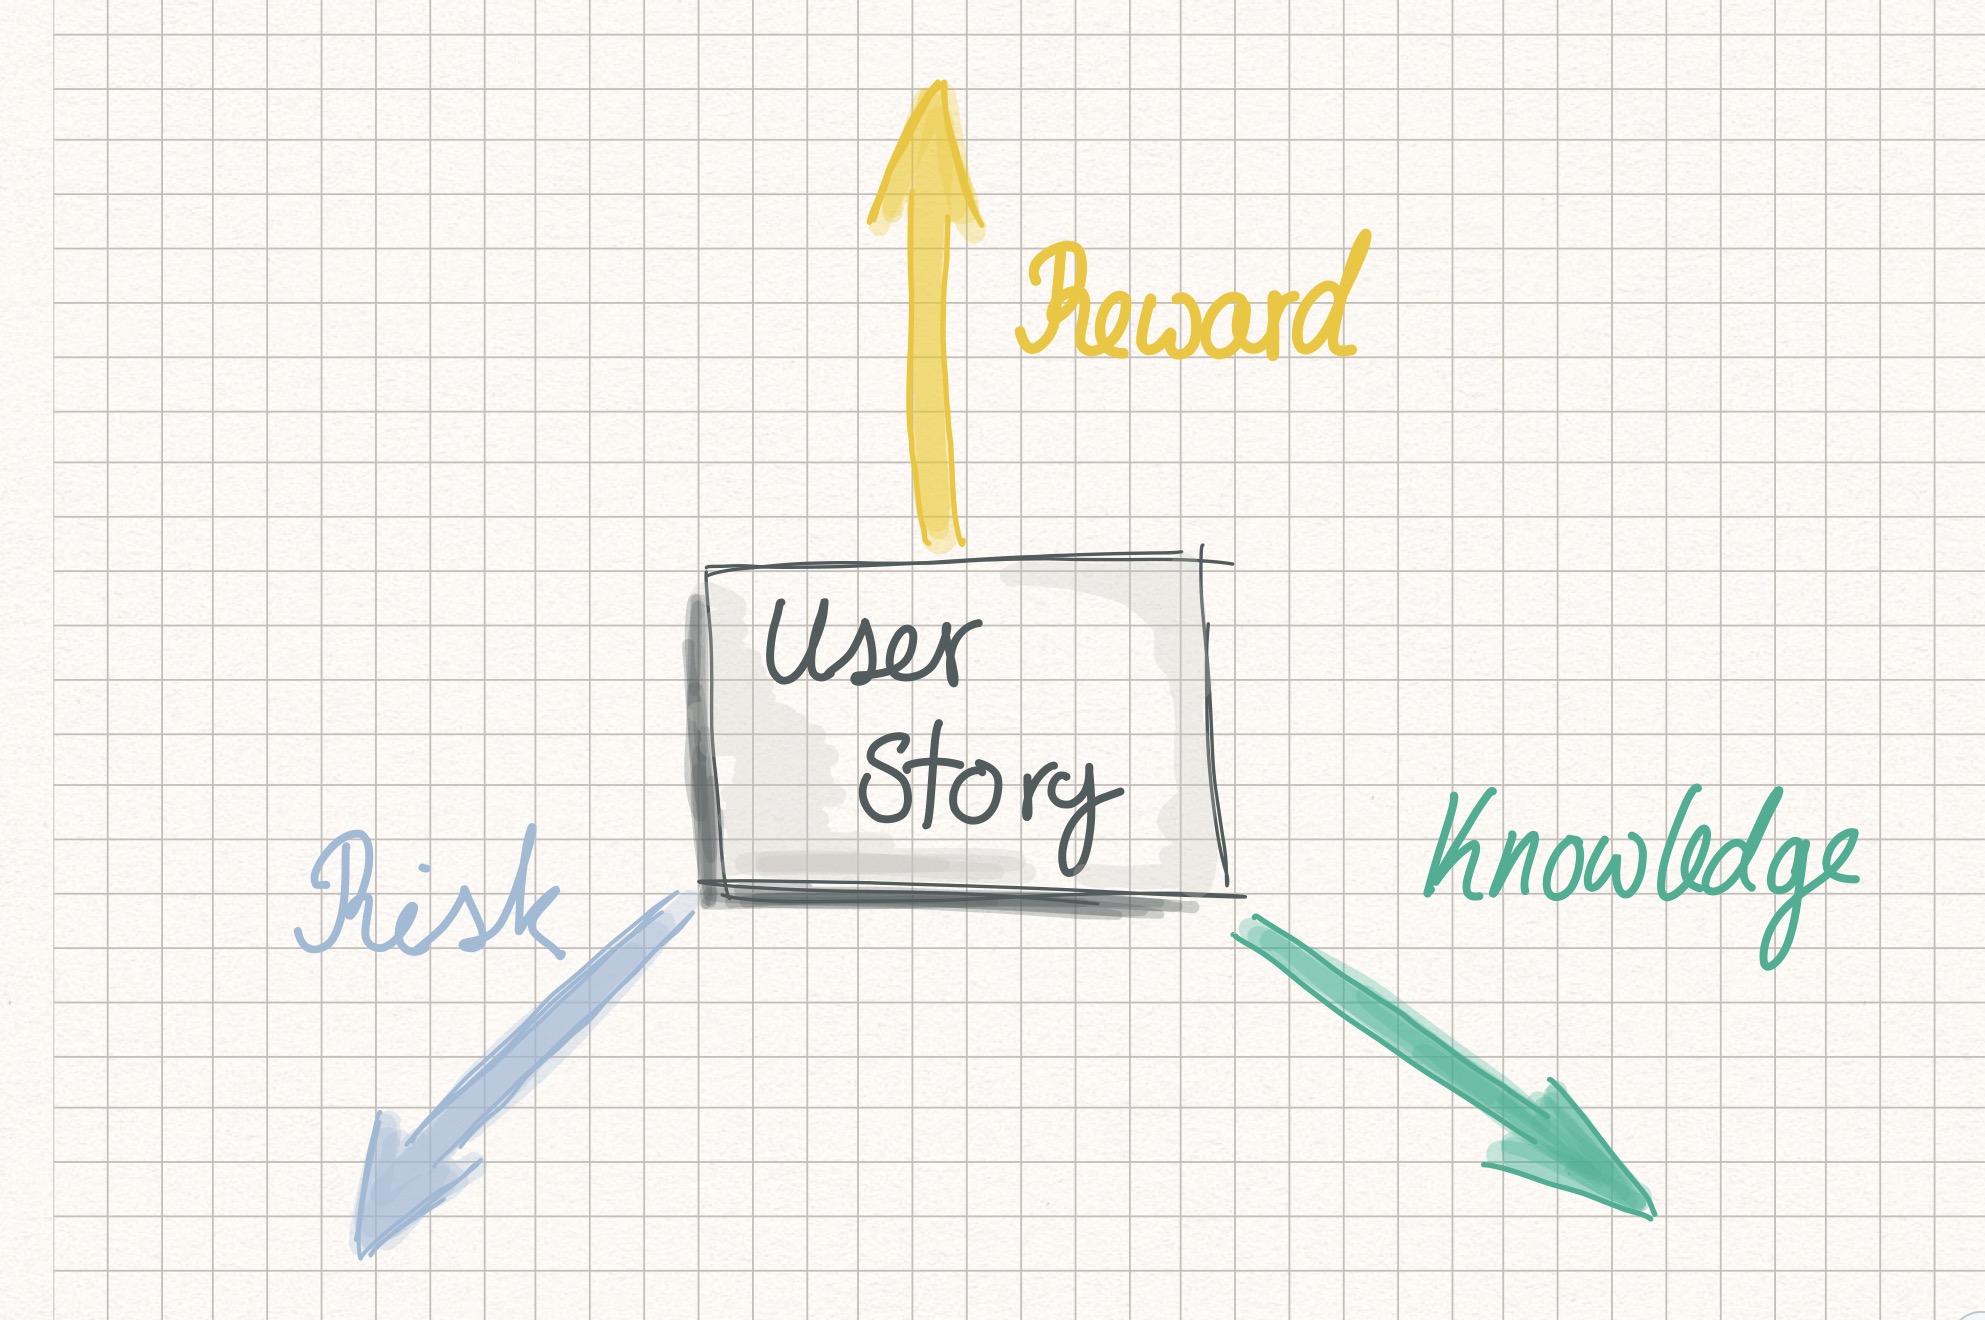 Reward
User
Story
Risk
Knowledge